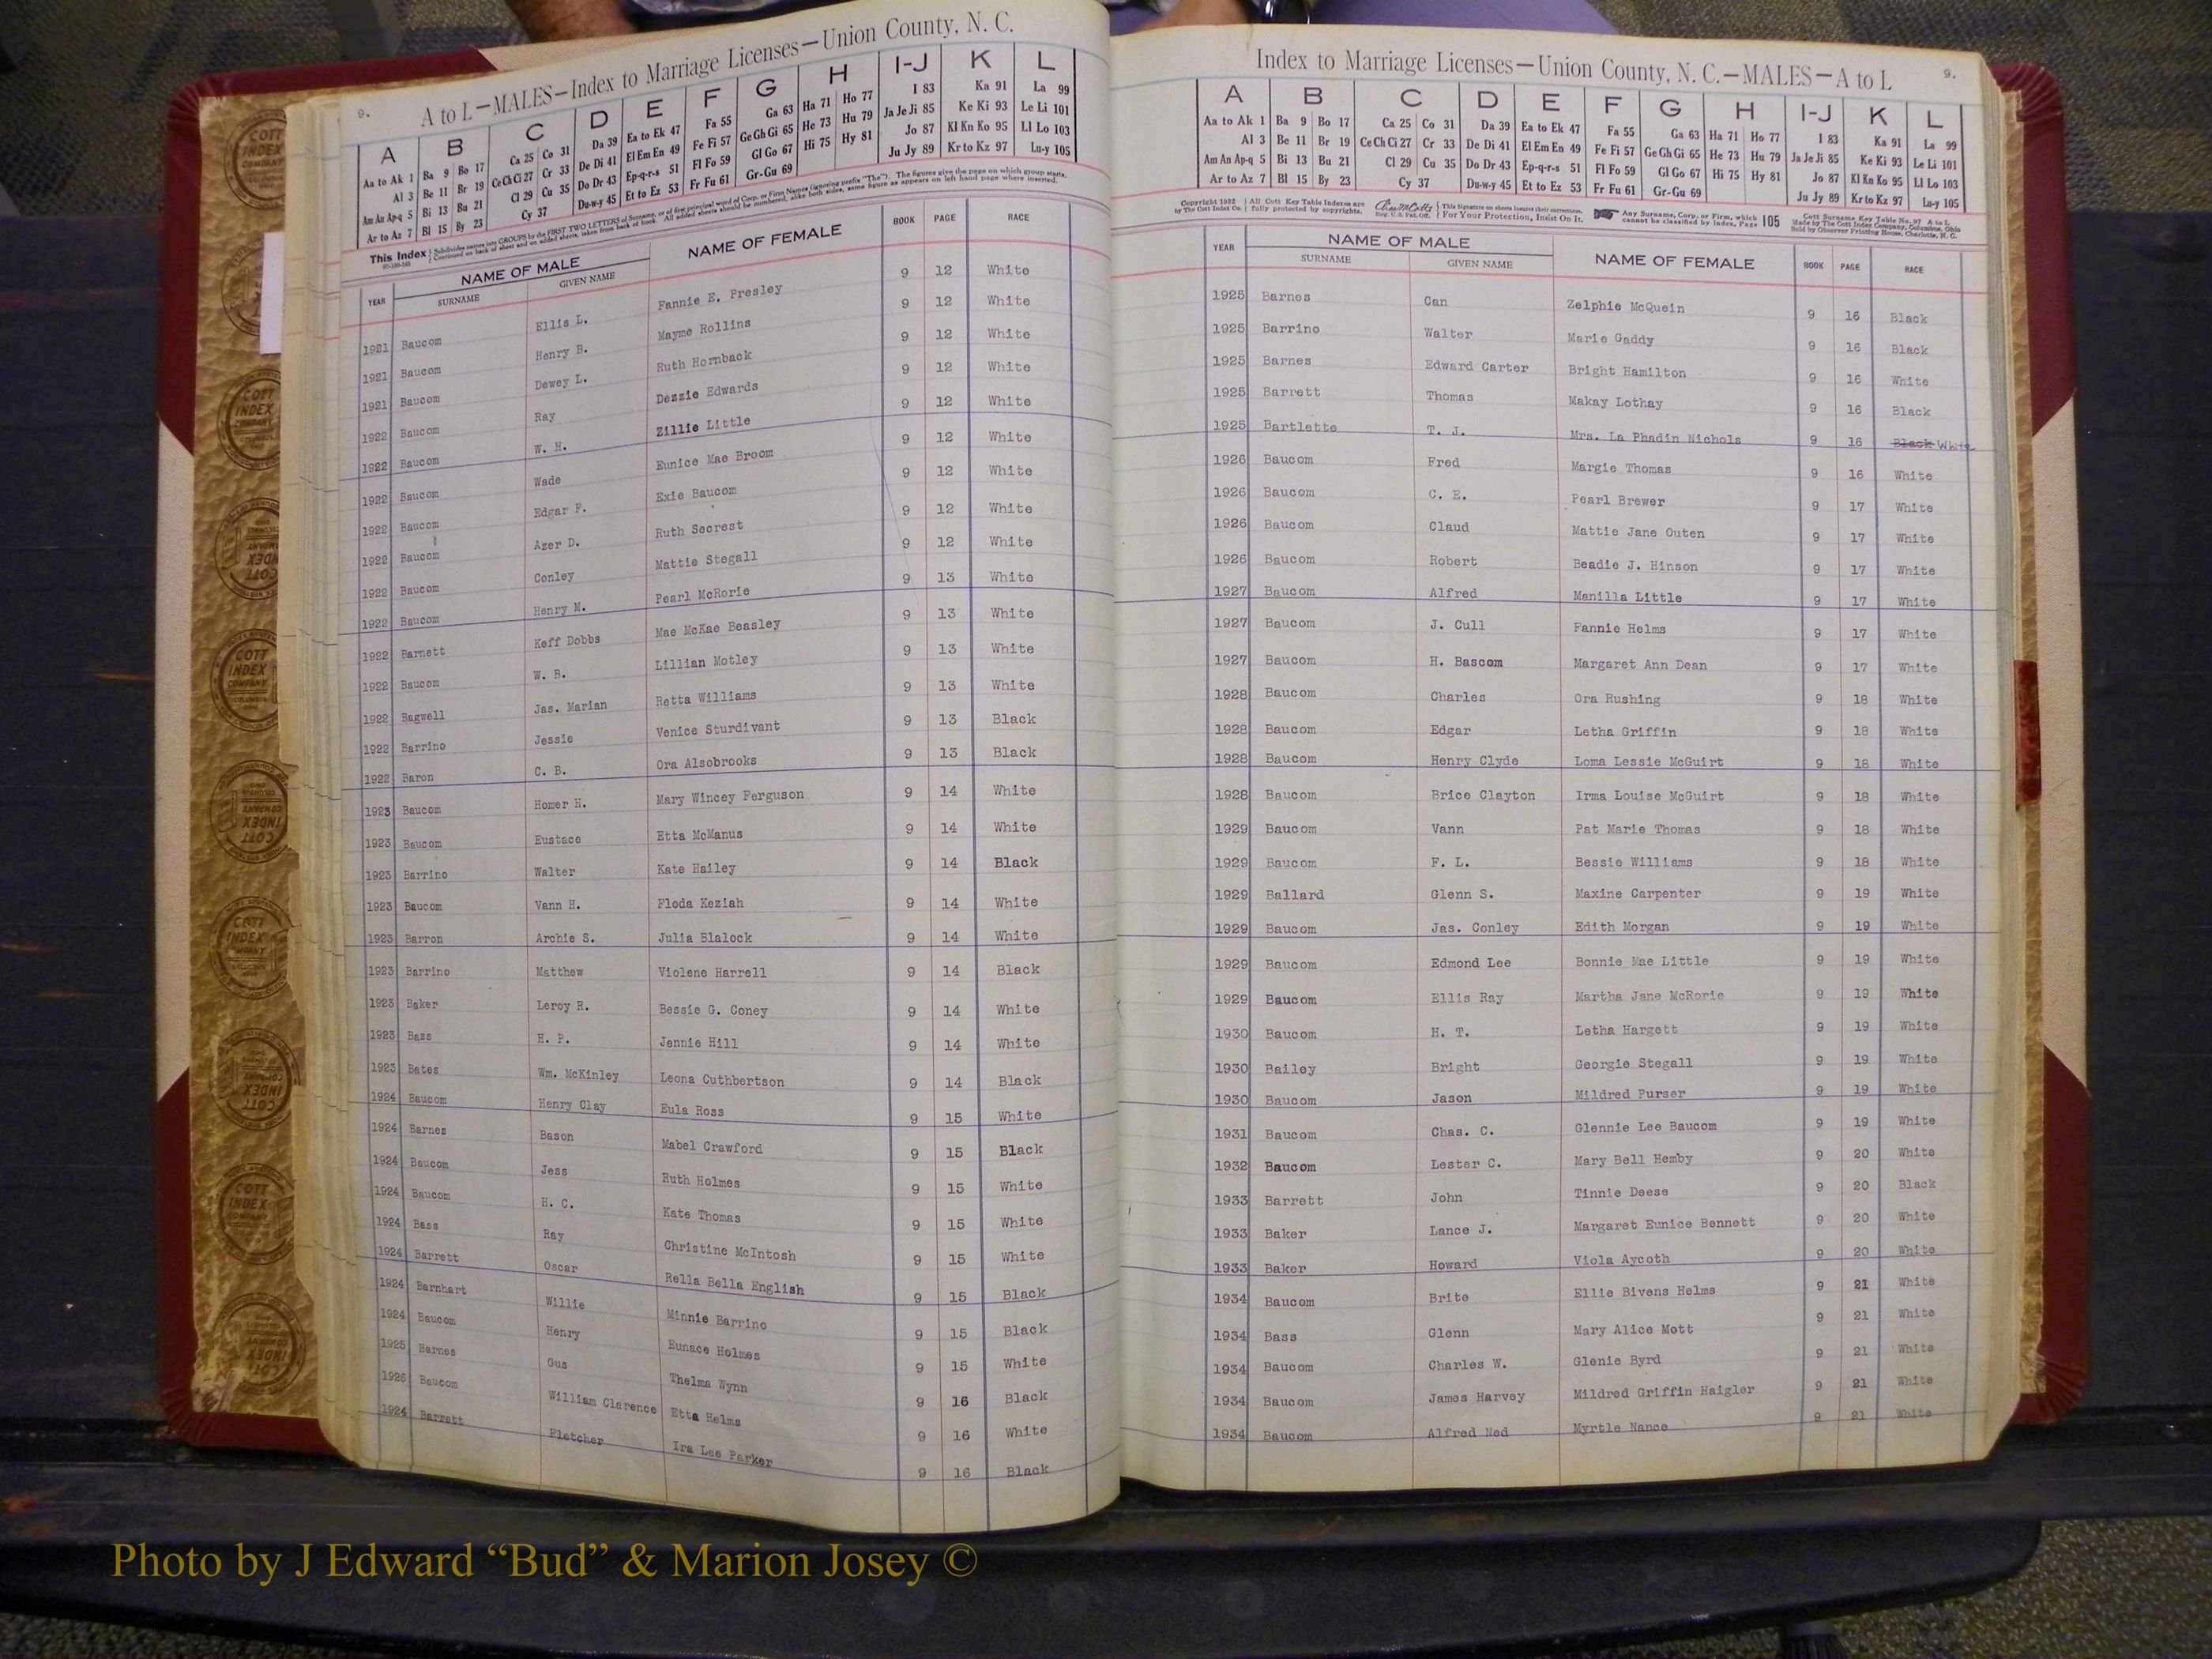 9.
A to L—MALES—Index to Marriage Licenses—Union County, N. C.
A B C D E F G H I-J K L
Aa to Ak 1 Ba 9 Bo 17 Ca 25 Co 31 Da 39 Ea to Ek 47 Fa 55 Ga 63 Ha 71 Ho 77 I 83 Ka 91 La 99
Al 3 Be 11 Br 19 Ce Ch Ci 27 Cr 33 De Di 41 El Em En 49 Fe Fi 57 Ge Gh Gi 65 He 73 Hu 79 Ja Je Ji 85 Ke Ki 93 Le Li 101
Am An Ap-q 5 Bi 13 Bu 21 Cl 29 Cu 35 Do Dr 43 Ep-q-r-s 51 Fl Fo 59 Gl Go 67 Hi 75 Hy 81 Jo 87 Kl Kn Ko 95 Ll Lo 103
Ar to Az 7 Bl 15 By 23 Cy 37 Du-w-y 45 Et to Ez 53 Fr Fu 61 Gr-Gu 69 Ju Jy 89 Kr to Kz 97 Lu-y 105
This Index Subdivides names into GROUPS by the FIRST TWO LETTERS of Surname, or of first principal word of Corp. or Firm Names (ignoring prefix "The"). The figures give the page on which group starts.
Continued on back of sheet and on added sheets, taken from back of book. All added sheets should be numbered, alike both sides, same figure as appears on left hand page where inserted.
YEAR NAME OF MALE NAME OF FEMALE BOOK PAGE RACE
SURNAME GIVEN NAME
1921 Baucom Ellis L. Fannie E. Presley 9 12 White
1921 Baucom Henry B. Mayme Rollins 9 12 White
1921 Baucom Dewey L. Ruth Hornback 9 12 White
1922 Baucom Ray Dezzie Edwards 9 12 White
1922 Baucom W. H. Zillie Little 9 12 White
1922 Baucom Wade Eunice Mae Broom 9 12 White
1922 Baucom Edgar F. Exie Baucom 9 12 White
1922 Baucom Azer D. Ruth Secrest 9 12 White
1922 Baucom Conley Mattie Stegall 9 12 White
1922 Baucom Henry M. Pearl McRorie 9 13 White
1922 Barnett Keff Dobbs Mae McKae Beasley 9 13 White
1922 Baucom W. B. Lillian Motley 9 13 White
1922 Bagwell Jas. Marian Retta Williams 9 13 White
1922 Barrino Jessie Venice Sturdivant 9 13 Black
1922 Baron C. B. Ora Alsobrooks 9 13 Black
1923 Baucom Homer H. Mary Wincey Ferguson 9 14 White
1923 Baucom Eustace Etta McManus 9 14 White
1923 Barrino Walter Kate Hailey 9 14 Black
1923 Baucom Vann H. Floda Keziah 9 14 White
1923 Barron Archie S. Julia Blalock 9 14 White
1923 Barrino Matthew Violene Harrell 9 14 Black
1923 Baker Leroy R. Bessie G. Coney 9 14 White
1923 Bass H. P. Jennie Hill 9 14 White
1923 Bates Wm. McKinley Leona Cuthbertson 9 14 Black
1924 Baucom Henry Clay Eula Ross 9 15 White
1924 Barnes Bason Mabel Crawford 9 15 Black
1924 Baucom Jess Ruth Holmes 9 15 White
1924 Baucom H. C. Kate Thomas 9 15 White
1924 Bass Ray Christine McIntosh 9 15 White
1924 Barrett Oscar Rella Bella English 9 15 Black
1924 Barnhart Willie Minnie Barrino 9 15 Black
1924 Baucom Henry Eunace Holmes 9 15 White
1925 Barnes Gus Thelma Wynn 9 16 Black
1925 Baucom William Clarence Etta Helms 9 16 White
1924 Barrett Fletcher Ira Lee Parker 9 16 Black
Index to Marriage Licenses—Union County, N. C.—MALES—A to L
9.
A B C D E F G H I-J K L
Aa to Ak 1 Ba 9 Bo 17 Ca 25 Co 31 Da 39 Ea to Ek 47 Fa 55 Ga 63 Ha 71 Ho 77 I 83 Ka 91 La 99
Al 3 Be 11 Br 19 Ce Ch Ci 27 Cr 33 De Di 41 El Em En 49 Fe Fi 57 Ge Gh Gi 65 He 73 Hu 79 Ja Je Ji 85 Ke Ki 93 Le Li 101
Am An Ap-q 5 Bi 13 Bu 21 Cl 29 Cu 35 Do Dr 43 Ep-q-r-s 51 Fl Fo 59 Gl Go 67 Hi 75 Hy 81 Jo 87 Kl Kn Ko 95 Ll Lo 103
Ar to Az 7 Bl 15 By 23 Cy 37 Du-w-y 45 Et to Ez 53 Fr Fu 61 Gr-Gu 69 Ju Jy 89 Kr to Kz 97 Lu-y 105
Copyright 1922 All Cott Key Table Indexes are This Signature on sheets insures their correctness. Any Surname, Corp. or Firm, which 105 Cott Surname Key Table No. 97 A to L
by The Cott Index Co. fully protected by copyrights. Reg. U.S. Pat. Off. For Your Protection, Insist On It. cannot be classified by Index, Page Made by The Cott Index Company, Columbus, Ohio
Sold by Observer Printing House, Charlotte, N. C.
YEAR NAME OF MALE NAME OF FEMALE BOOK PAGE RACE
SURNAME GIVEN NAME
1925 Barnes Can Zelphie McQuein 9 16 Black
1925 Barrino Walter Marie Gaddy 9 16 Black
1925 Barnes Edward Carter Bright Hamilton 9 16 White
1925 Barrett Thomas Makay Lothay 9 16 Black
1925 Bartlette T. J. Mrs. La Phadin Nichols 9 16 Black White
1926 Baucom Fred Margie Thomas 9 16 White
1926 Baucom C. E. Pearl Brewer 9 17 White
1926 Baucom Claud Mattie Jane Outen 9 17 White
1926 Baucom Robert Beadie J. Hinson 9 17 White
1927 Baucom Alfred Manilla Little 9 17 White
1927 Baucom J. Cull Fannie Helms 9 17 White
1927 Baucom H. Bascom Margaret Ann Dean 9 17 White
1928 Baucom Charles Ora Rushing 9 18 White
1928 Baucom Edgar Letha Griffin 9 18 White
1928 Baucom Henry Clyde Loma Lessie McGuirt 9 18 White
1928 Baucom Brice Clayton Irma Louise McGuirt 9 18 White
1929 Baucom Vann Pat Marie Thomas 9 18 White
1929 Baucom F. L. Bessie Williams 9 18 White
1929 Ballard Glenn S. Maxine Carpenter 9 19 White
1929 Baucom Jas. Conley Edith Morgan 9 19 White
1929 Baucom Edmond Lee Bonnie Mae Little 9 19 White
1929 Baucom Ellis Ray Martha Jane McRorie 9 19 White
1930 Baucom H. T. Letha Hargett 9 19 White
1930 Bailey Bright Georgie Stegall 9 19 White
1930 Baucom Jason Mildred Purser 9 19 White
1931 Baucom Chas. C. Glennie Lee Baucom 9 19 White
1932 Baucom Lester C. Mary Bell Hemby 9 20 White
1933 Barrett John Tinnie Deese 9 20 Black
1933 Baker Lance J. Margaret Eunice Bennett 9 20 White
1933 Baker Howard Viola Aycoth 9 20 White
1934 Baucom Brite Ellie Bivens Helms 9 21 White
1934 Bass Glenn Mary Alice Mott 9 21 White
1934 Baucom Charles W. Glenie Byrd 9 21 White
1934 Baucom James Harvey Mildred Griffin Haigler 9 21 White
1934 Baucom Alfred Ned Myrtle Nance 9 21 White
Photo by J Edward “Bud” & Marion Josey ©